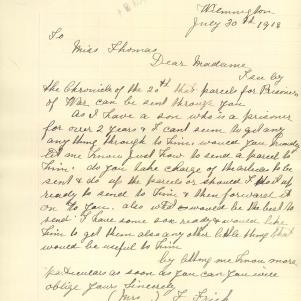 Wilmington
July 30th 1918
To
Miss Thomas,
Dear Madame,
I see by
the Chronicle of the 20th that parcels for Prisoners
of War can be sent through you
As I have a son who is a prisoner
for over 2 years & I cant seem to get any
any thing through to him. would you kindly
let me know just how to send a parcel to
him. do you take charge of the articles to be
sent & do up the parcels or should I do it up
ready to send to him & then forward it
on to you. also what would be the best to
send I have some ready & would like
him to get them also any other little thing that
would be useful to him
by letting me know more
particulars as soon as you can you will
oblige yours Sincerely
(Mrs.) F.